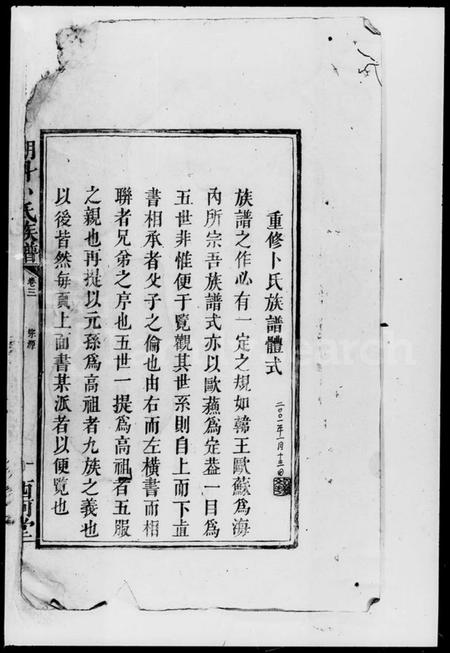 重修卜氏族譜體式
二〇〇二年一月十五日
族譜之作必有一定之規如韓王歐蘇為海
內所宗吾族譜式亦以歐蘇為定葢一目為
五世非惟便于覽觀其世系則自上而下直
書相承者父子之倫也由右而左橫書而相
聯者兄弟之序也五世一提爲高祖者五服
之親也再提以元孫爲高祖者九族之義也
以後皆然每頁上面書某派者以便覽也
卜氏族譜
卷三
西河堂